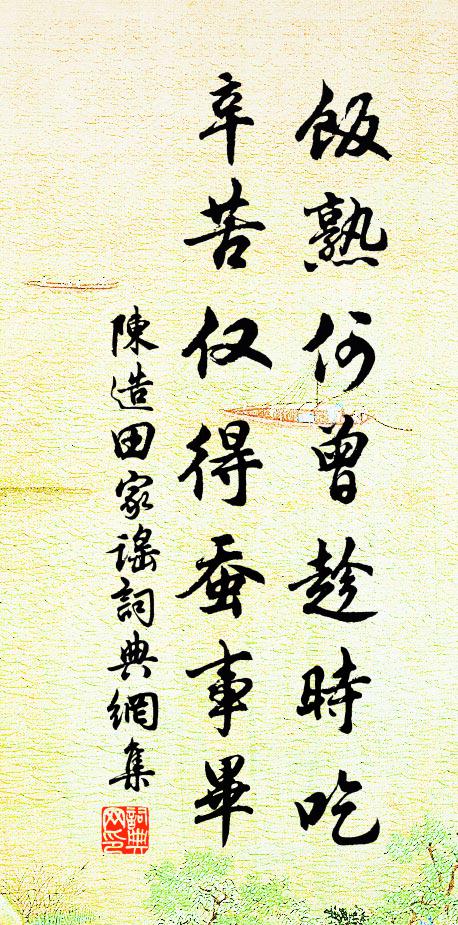 飯熟何曾趁時吃
辛苦仅得蚕事畢
陳造田家謠詞典網集
詞典網印